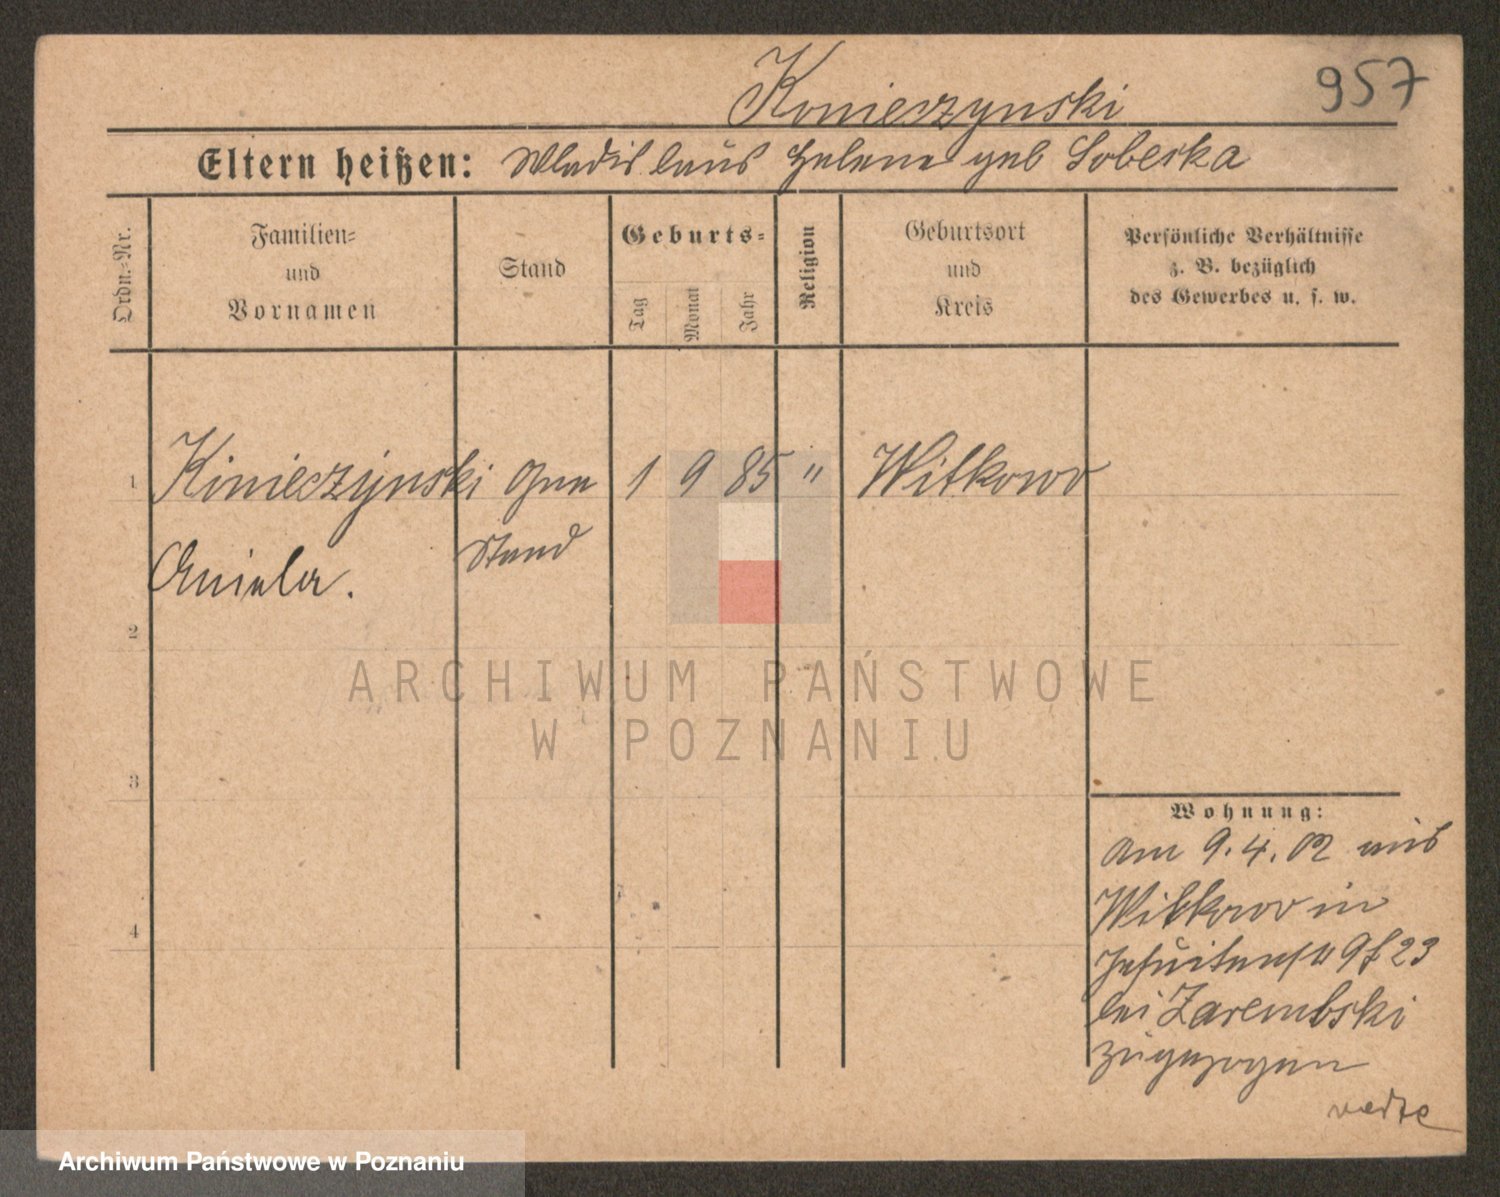 957
Konieczynski
Eltern heißen: Wladislaus Helene geb Soberka
Ordn.-Nr.
Familien-
und
Vornamen
Stand
Geburts-
Tag
Monat
Jahr
Religion
Geburtsort
und
Kreis
Persönliche Verhältnisse
z. B. bezüglich
des Gewerbes u. s. w.
1 Kinieczijnski Ohne 1 9 85 " Witkowo
Stand
Aniela.
2
3
4
ARCHIWUM PAŃSTWOWE
W POZNANIU
Wohnung:
am 9. 4. 02 aus
Witkowo in
Jesuitenstr 9 23
bei Zarembski
zugezogen
Archiwum Państwowe w Poznaniu